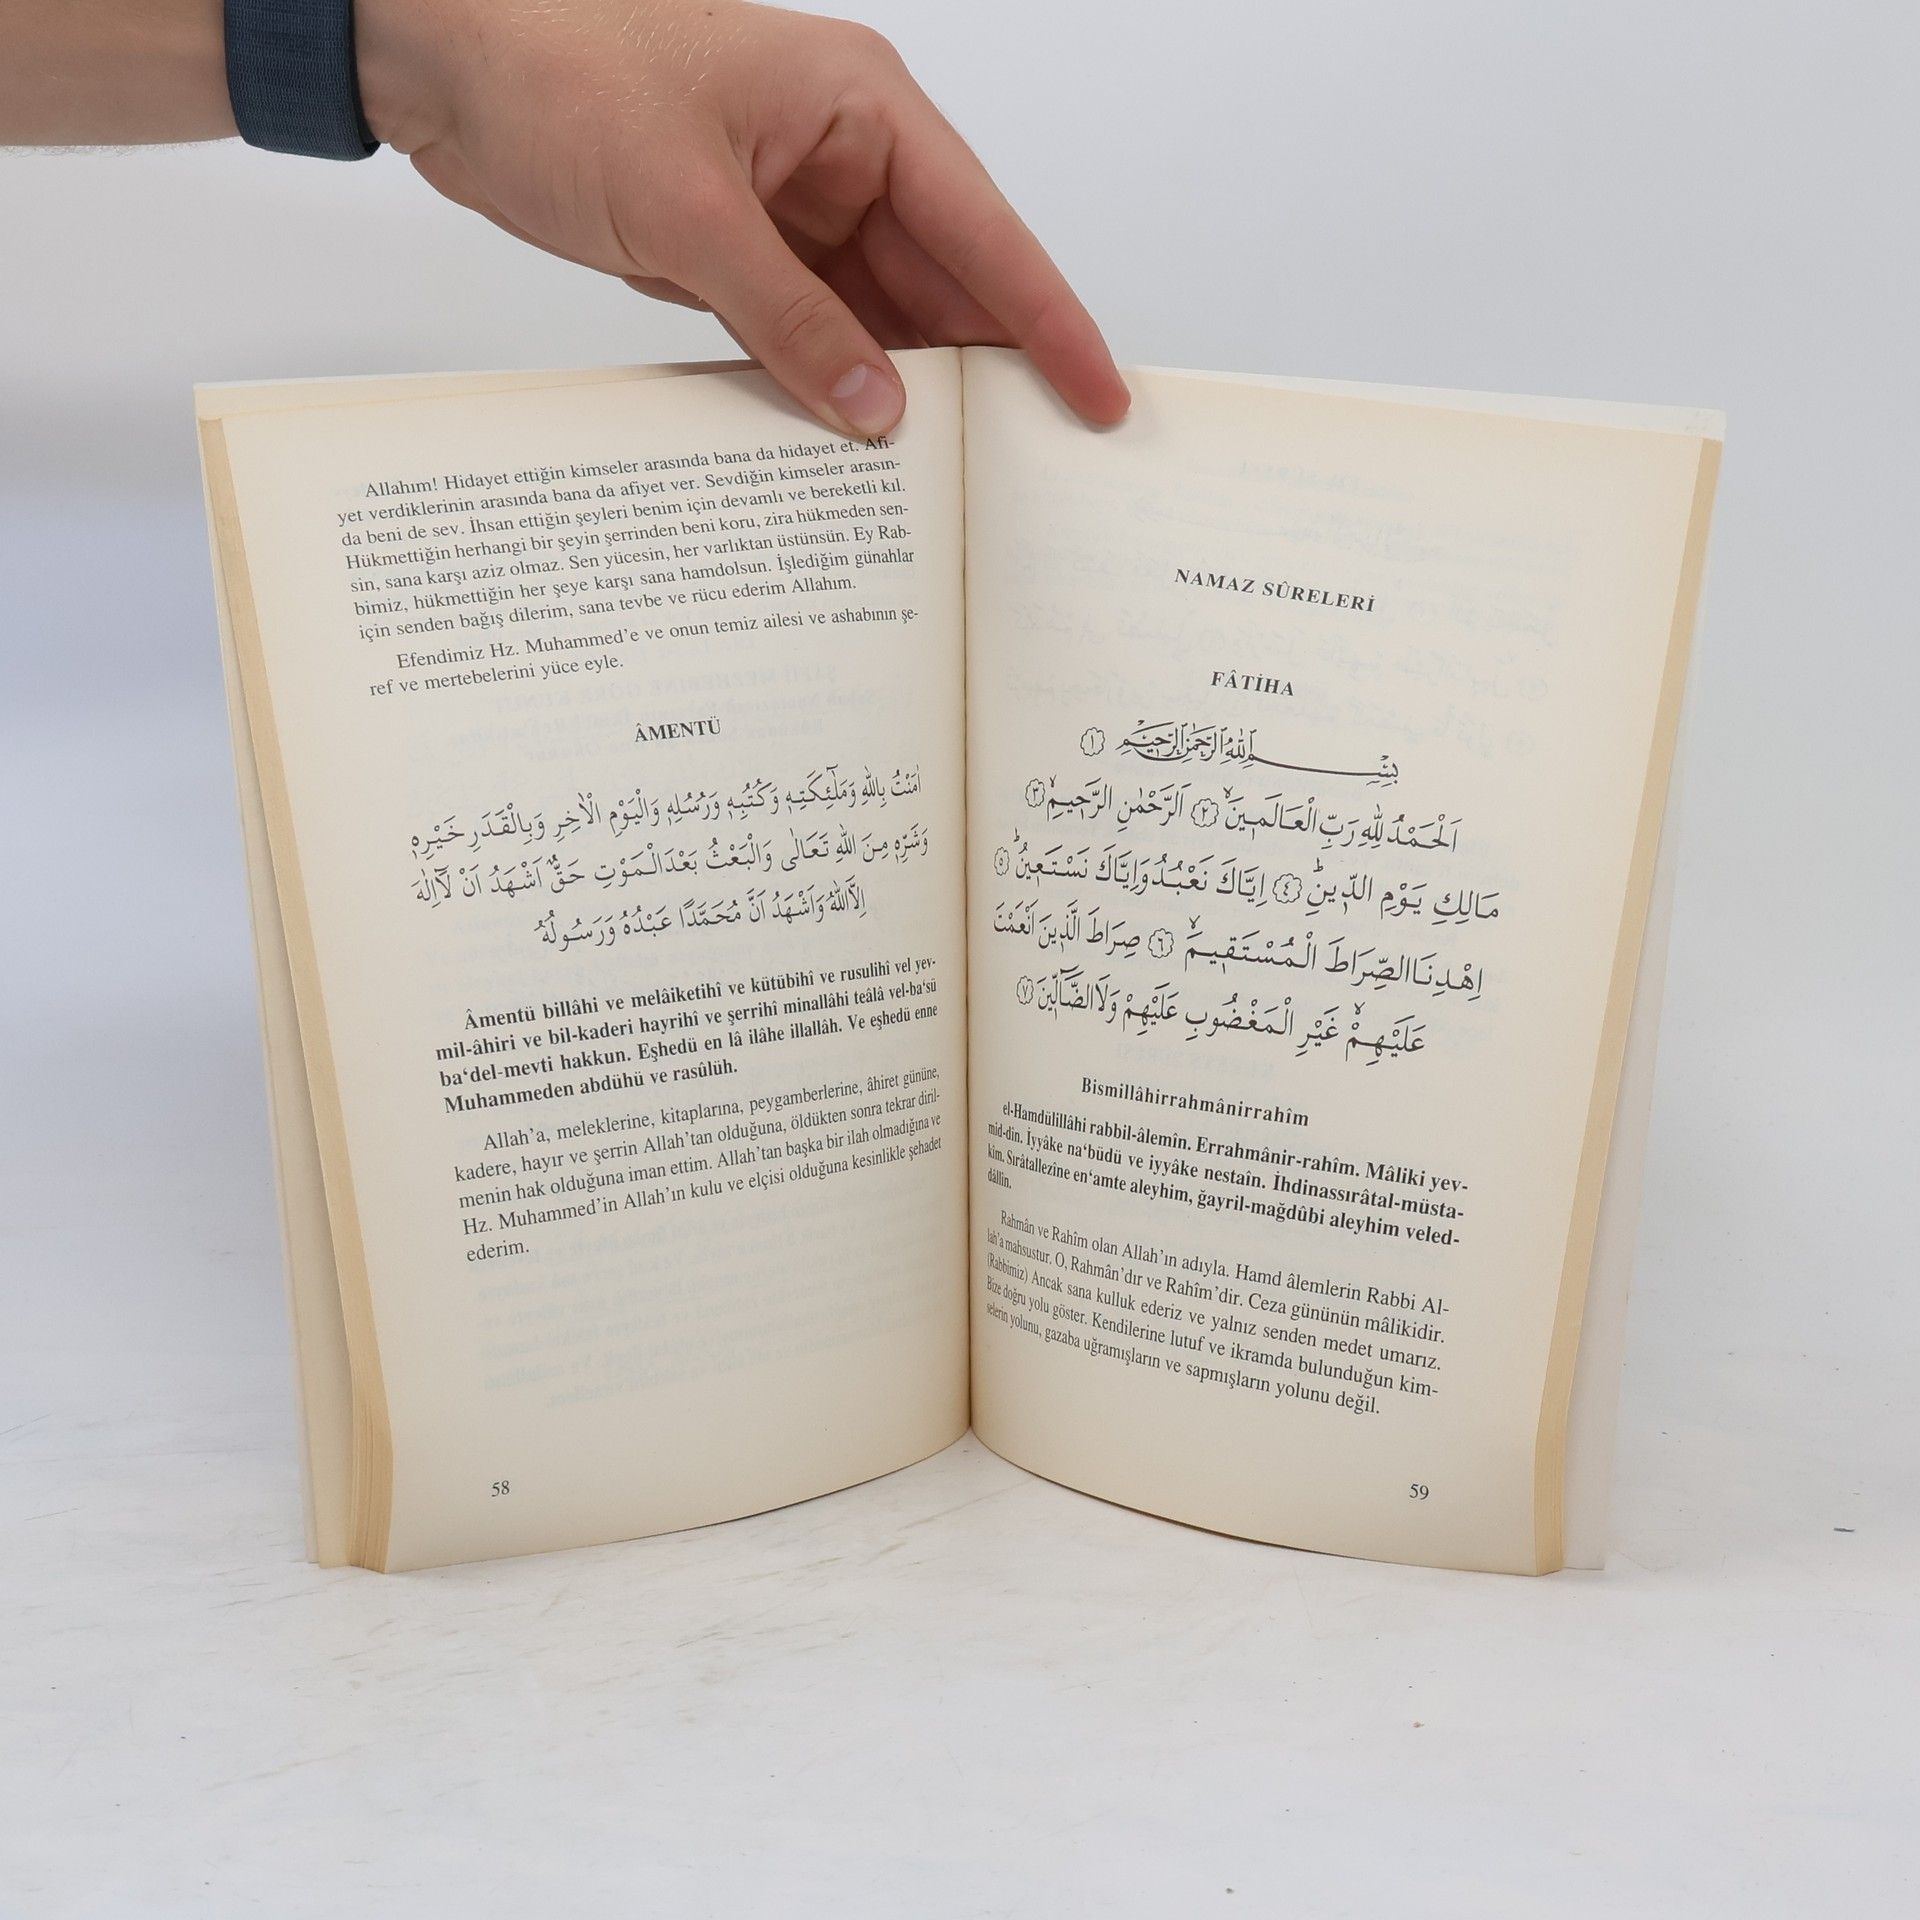 Allahım! Hidayet ettiğin kimseler arasında bana da hidayet et. Afi-
yet verdiklerinin arasında bana da afiyet ver. Sevdiğin kimseler arasın-
da beni de sev. İhsan ettiğin şeyleri benim için devamlı ve bereketli kıl.
Hükmettiğin herhangi bir şeyin şerrinden beni koru, zira hükmeden sen-
sin, sana karşı aziz olmaz. Sen yücesin, her varlıktan üstünsün. Ey Rab-
bimiz, hükmettiğin her şeye karşı sana hamdolsun. İşlediğim günahlar
için senden bağış dilerim, sana tevbe ve rücu ederim Allahım.
Efendimiz Hz. Muhammed’e ve onun temiz ailesi ve ashabının şe-
ref ve mertebelerini yüce eyle.
ÂMENTÜ
اٰمَنْتُ بِاللّٰهِ وَمَلٰٓئِكَتِهٖ وَكُتُبِهٖ وَرُسُلِهٖ وَالْيَوْمِ الْاٰخِرِ وَبِالْقَدَرِ خَيْرِهٖ
وَشَرِّهٖ مِنَ اللّٰهِ تَعَالٰى وَالْبَعْثُ بَعْدَ الْمَوْتِ حَقٌّ اَشْهَدُ اَنْ لَٓا اِلٰهَ
اِلَّا اللّٰهُ وَاَشْهَدُ اَنَّ مُحَمَّدًا عَبْدُهُ وَرَسُولُهُ
Âmentü billâhi ve melâiketihî ve kütübihî ve rusulihî vel yev-
mil-âhiri ve bil-kaderi hayrihî ve şerrihî minallâhi teâlâ vel-ba‘sü
ba‘del-mevti hakkun. Eşhedü en lâ ilâhe illallâh. Ve eşhedü enne
Muhammeden abdühü ve rasûlüh.
Allah’a, meleklerine, kitaplarına, peygamberlerine, âhiret gününe,
kadere, hayır ve şerrin Allah’tan olduğuna, öldükten sonra tekrar diril-
menin hak olduğuna iman ettim. Allah’tan başka bir ilah olmadığına ve
Hz. Muhammed’in Allah’ın kulu ve elçisi olduğuna kesinlikle şehadet
ederim.
58
NAMAZ SÛRELERİ
FÂTİHA
بِسْمِ اللّٰهِ الرَّحْمٰنِ الرَّحِيمِ ﴿١﴾
اَلْحَمْدُ لِلّٰهِ رَبِّ الْعَالَمِينَ ﴿٢﴾ اَلرَّحْمٰنِ الرَّحِيمِ ﴿٣﴾
مَالِكِ يَوْمِ الدِّينِ ﴿٤﴾ اِيَّاكَ نَعْبُدُ وَاِيَّاكَ نَسْتَعِينُ ﴿٥﴾
اِهْدِنَا الصِّرَاطَ الْمُسْتَقِيمَ ﴿٦﴾ صِرَاطَ الَّذِينَ اَنْعَمْتَ
عَلَيْهِمْ غَيْرِ الْمَغْضُوبِ عَلَيْهِمْ وَلَا الضَّٓالِّينَ ﴿٧﴾
Bismillâhirrahmânirrahîm
el-Hamdülillâhi rabbil-âlemîn. Errahmânir-rahîm. Mâliki yev-
mid-dîn. İyyâke na‘büdü ve iyyâke nestaîn. İhdinassırâtal-müsta-
kîm. Sırâtallezîne en‘amte aleyhim, ğayril-mağdûbi aleyhim veled-
dâllîn.
Rahmân ve Rahîm olan Allah’ın adıyla. Hamd âlemlerin Rabbi Al-
lah’a mahsustur. O, Rahmân’dır ve Rahîm’dir. Ceza gününün mâlikidir.
(Rabbimiz) Ancak sana kulluk ederiz ve yalnız senden medet umarız.
Bize doğru yolu göster. Kendilerine lutuf ve ikramda bulunduğun kim-
selerin yolunu, gazaba uğramışların ve sapmışların yolunu değil.
59